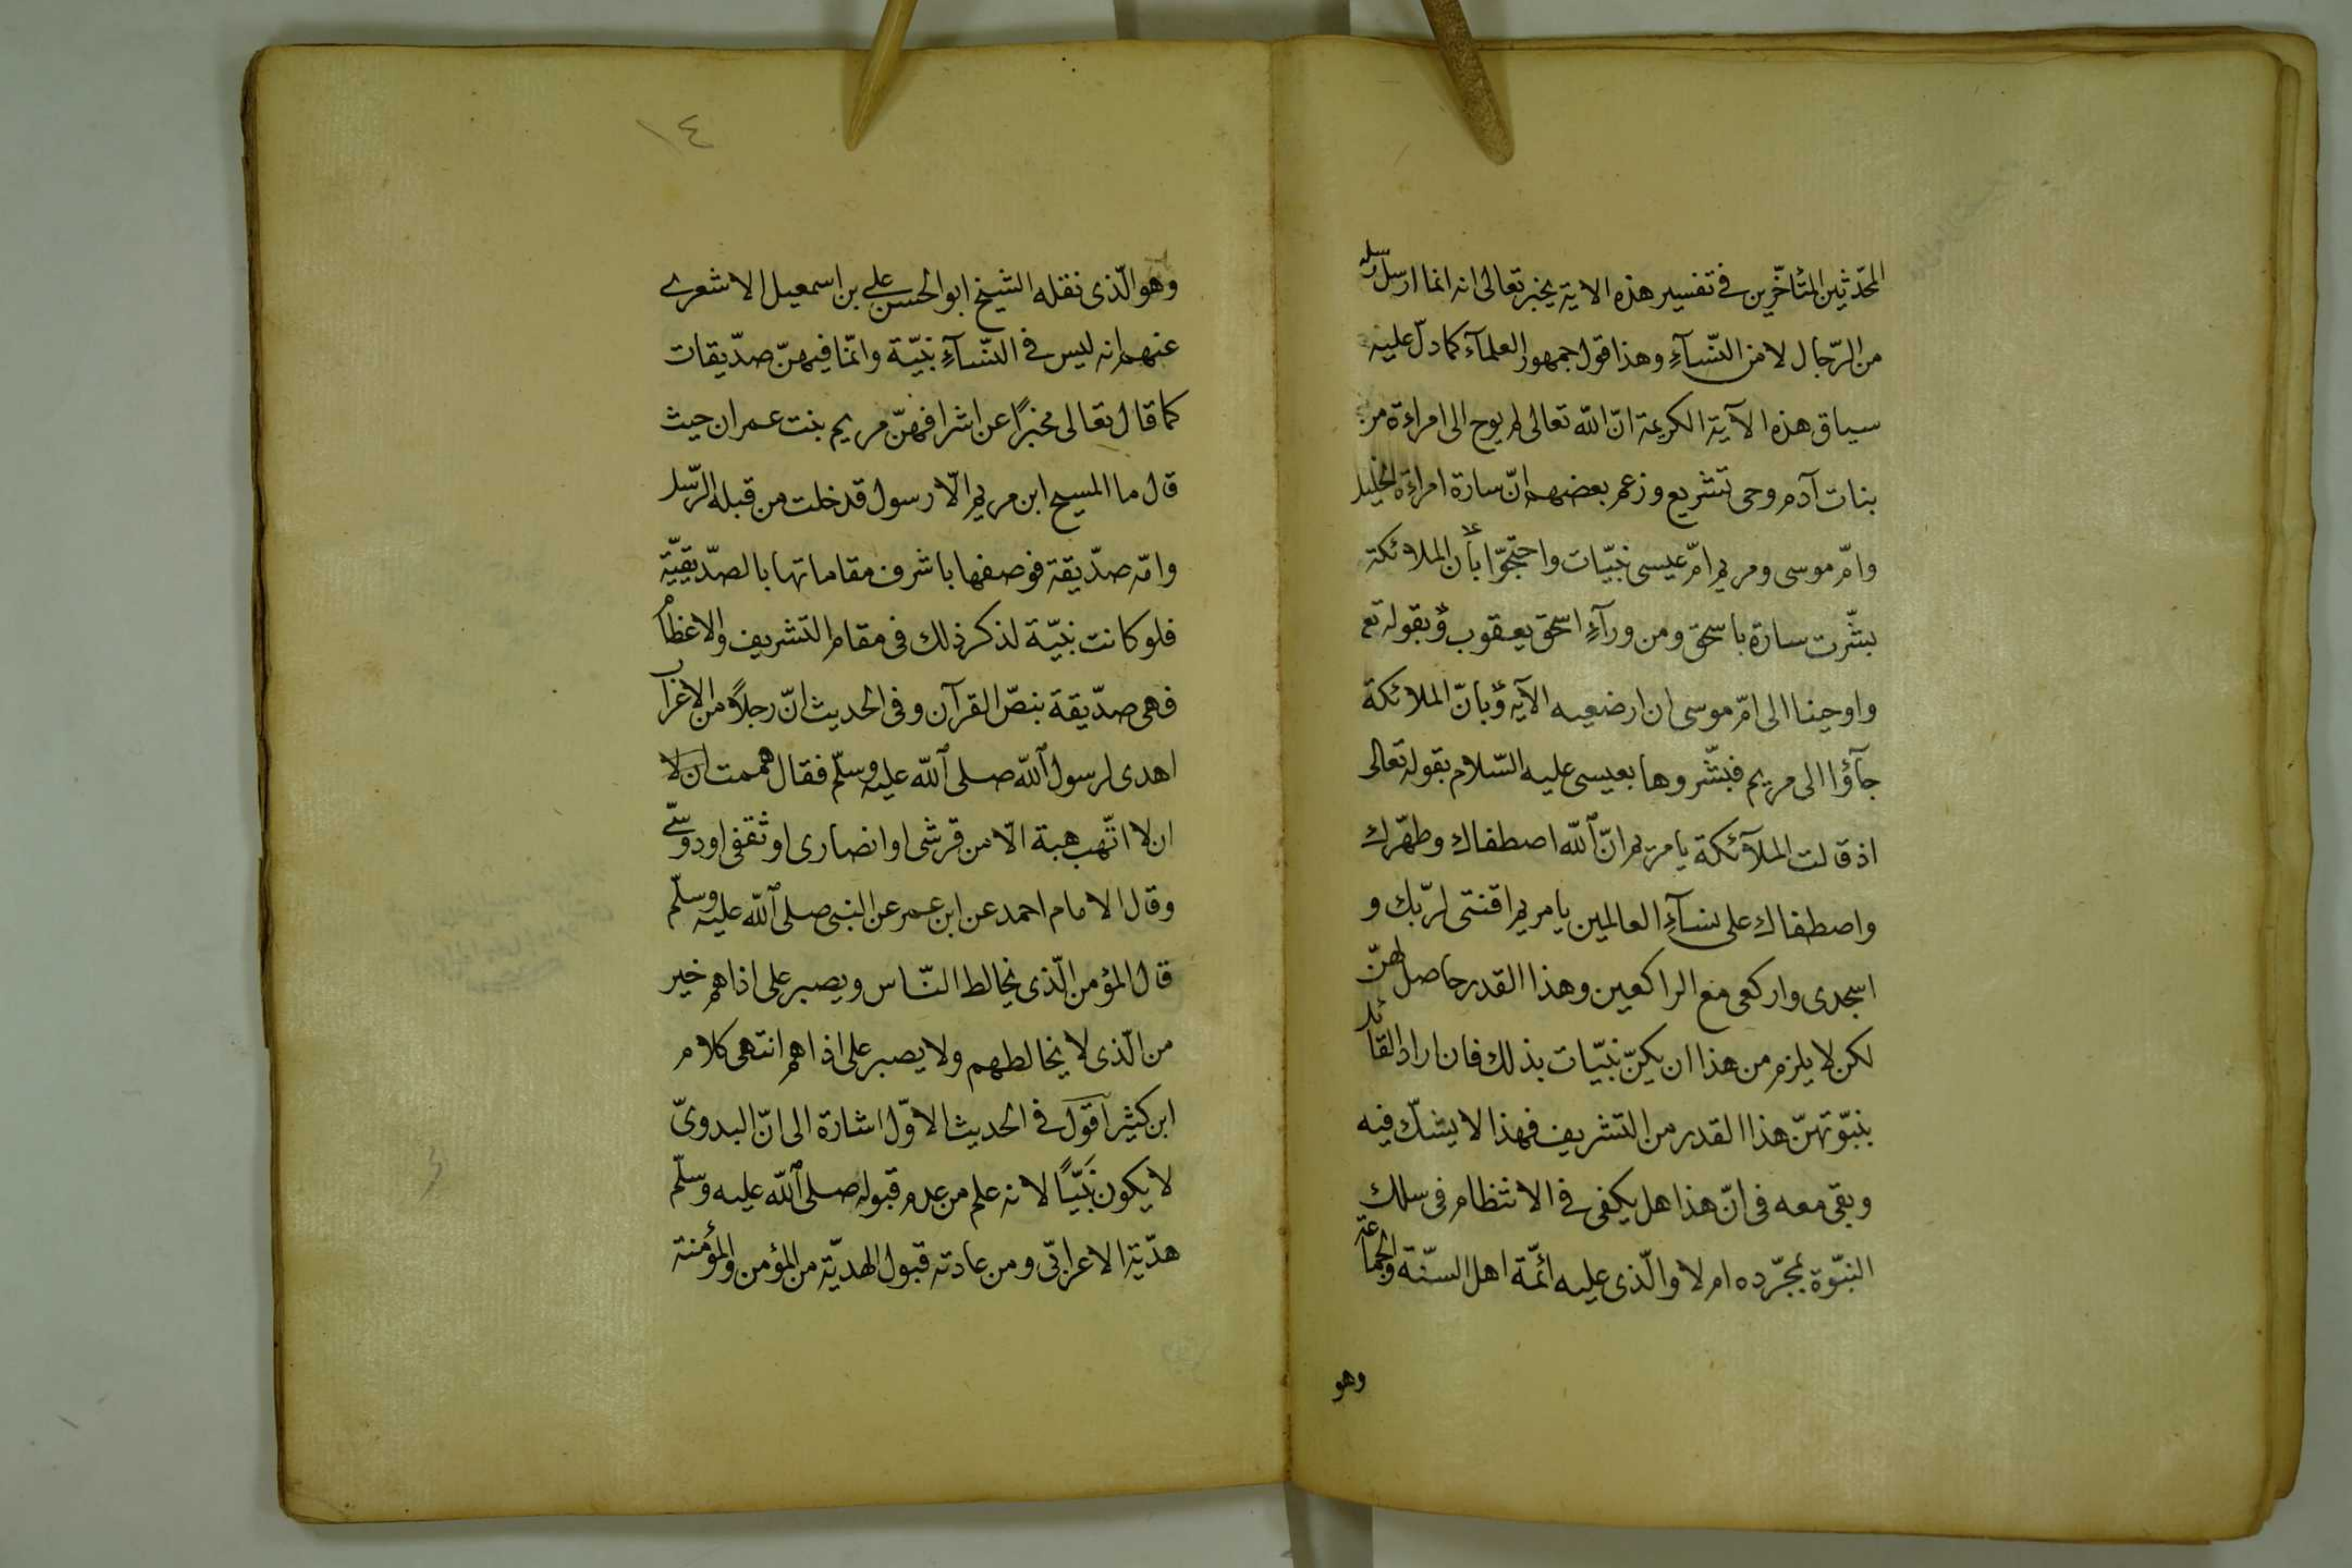 المحدّثين المتأخّرين فى تفسير هذه الاية يخبر تعالى انه انما ارسل رسله
من الرّجال لا من النّسآءِ وهذا قول جمهور العلمآء كما دلّ عليه
سياق هذه الآية الكريمة انّ الله تعالى لم يوح الى امراءة من
بنات آدم وحى تشريع وزعم بعضهم انّ سارة امراءة الخليل
وامّ موسى ومريم امّ عيسى نبيّات واحتجّوا بأن الملائكة
بشّرت سارة باسحق ومن ورآءِ اسحق يعقوب وبقوله تع
واوحينا الى امّ موسى ان ارضعيه الآية وبانّ الملائكة
جآؤا الى مريم فبشّروها بعيسى عليه السّلام بقوله تعالى
اذ قالت الملآئكة يا مريم انّ الله اصطفاك وطهّرك
واصطفاك على نسآءِ العالمين يا مريم اقنتى لربّك و
اسجدى واركعى مع الراكعين وهذا القدر حاصل لهنّ
لكن لا يلزم من هذا ان يكنّ نبيّات بذلك فان اراد القائل
بنبوّتهنّ هذا القدر من التشريف فهذا لا يشكّ فيه
وبقى معه فى انّ هذا هل يكفى فى الانتظام فى سلك
النبوّة بمجرّده ام لا والّذى عليه ائمّة اهل السنّة والجماعة
وهو
١٤
وهو الّذى نقله الشيخ ابو الحسن على بن اسمعيل الاشعرى
عنهم انه ليس فى النّسآءِ نبيّة وانّما فيهنّ صدّيقات
كما قال تعالى مخبرًا عن اشرافهنّ مريم بنت عمران حيث
قال ما المسيح ابن مريم الّا رسول قد خلت من قبله الرّسل
وامّه صدّيقة فوصفها باشرف مقاماتها بالصدّيقيّة
فلو كانت نبيّة لذكر ذلك فى مقام التشريف والاعظام
فهى صدّيقة بنصّ القرآن وفى الحديث انّ رجلاً من الاعراب
اهدى لرسول الله صلى الله عليه وسلّم فقال هممت ان لا
ان لا اتّهب هبة الّا من قرشى او انصارى او ثقفى او دوسّى
وقال الامام احمد عن ابن عمر عن النبى صلى الله عليه وسلّم
قال المؤمن الّذى يخالط النّاس ويصبر على اذاهم خير
من الّذى لا يخالطهم ولا يصبر على اذاهم انتهى كلام
ابن كثير اقول فى الحديث الاوّل اشارة الى انّ البدوىّ
لا يكون نبيّاً لانه علم من عدم قبوله صلى الله عليه وسلّم
هديّة الاعرابّى ومن عادته قبول الهديّة من المؤمن والمؤمنة